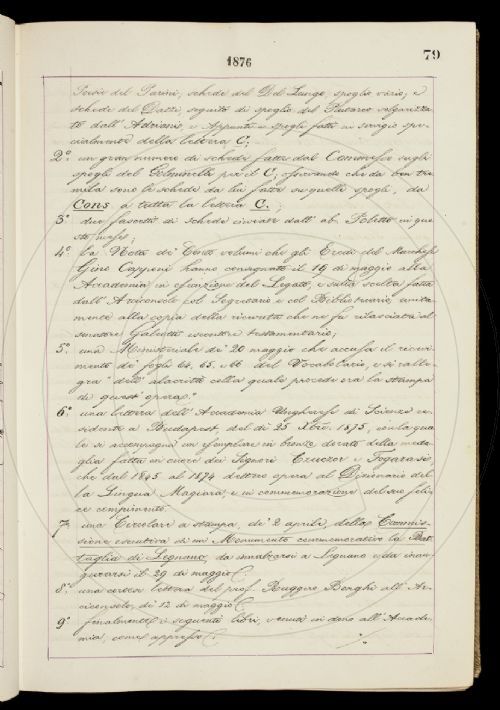 1876
79
Poesie del Parini, schede del Del Lungo, spoglio vario, e
schede del Dazzi, seguito di spoglio del Plutarco volgarizza
to dall'Adriani, e Appunti e spogli fatti in servigio spe-
cialmente della lettera C;
2.° un gran numero di schede fatte dal Cavalier sugli
spogli del per il C; che da ben tre
mila sono le schede da lui fatte su quelli spogli, da
Cons a tutta la lettera C.;
3.° due fascetti di schede inviate dall'ab. Poletto in que
sto mese;
4.° la Nota di Cento volumi che gli Eredi del Marchese
Gino Capponi hanno consegnato il 19 di maggio alla
Accademia, in esecuzione del Legato, e sulla scelta fatta
dall'Arciconsolo col Segretario e col Bibliotecario, unita-
mente alla copia della ricevuta che ne fu rilasciata al
senatore Galeotti esecutore testamentario;
5.° una Ministeriale de' 20 maggio che accusa il ricevi-
mento di fogli 64. 65. 66 del Vocabolario, e si ralle-
gra "dell'alacrità colla quale procede ora la stampa
di quest'opera."
6.° una lettera dell'Accademia Ungherese di Scienze re-
sidente a Budapest, del dì 25 Xbre. 1875, con la qua
le si accompagna un esemplare in bronzo dorato della meda
glia fatta in onore dei Signori Czuczor e Fogarasi,
che dal 1845 al 1874 dettero opera al Dizionario del
la Lingua Magiara, e in commemorazione del suo feli-
ce compimento.
7. una Circolare a stampa, de' 2 aprile, della Commis-
sione esecutiva di un Monumento commemorativo la Bat
taglia di Legnano, da innalzarsi a Legnano e da inau-
gurarsi il 29 di maggio.
8.° una lettera del prof. Ruggero Bonghi all'Ar-
ciconsolo, di 12 di maggio.
9.° finalmente i seguenti libri, venuti in dono all'Accade-
mia, come appresso.